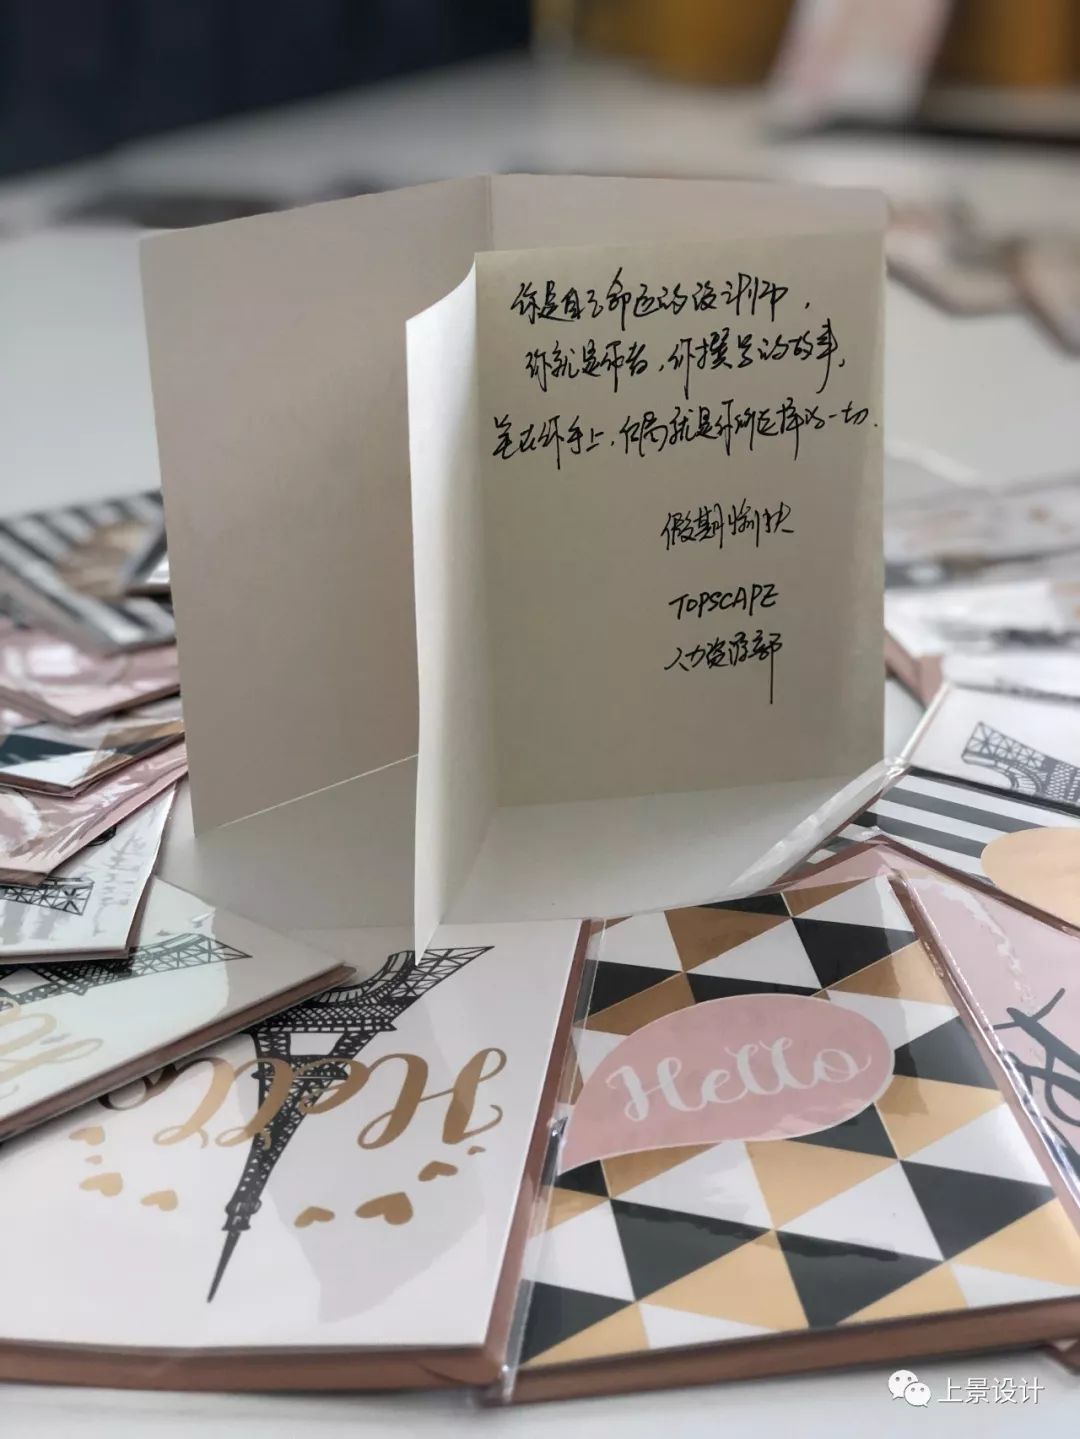 你是自己命运的设计师，
你就是作者，你撰写的故事，
笔在你手上，结局就是你所选择的一切.
假期愉快
TOPSCAPE
人力资源部
Hello
Hello
上景设计